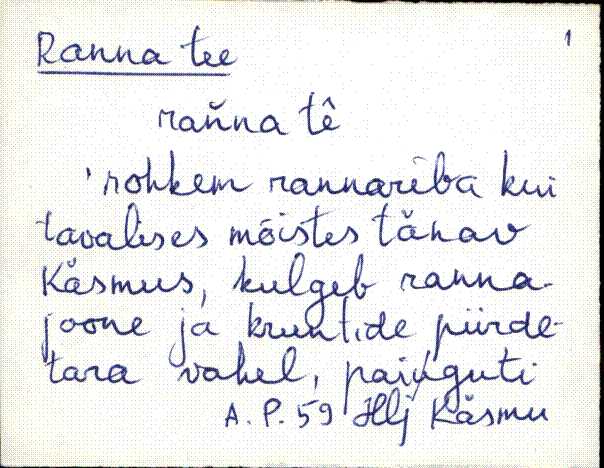 Ranna tee 1
rañna tê
'rohkem rannariba kui
tavalises mõistes tänav
Käsmus, kulgeb ranna-
joone ja kruntide piirde-
tara vahel, paiguti
A. P. 59 Hlj Käsmu